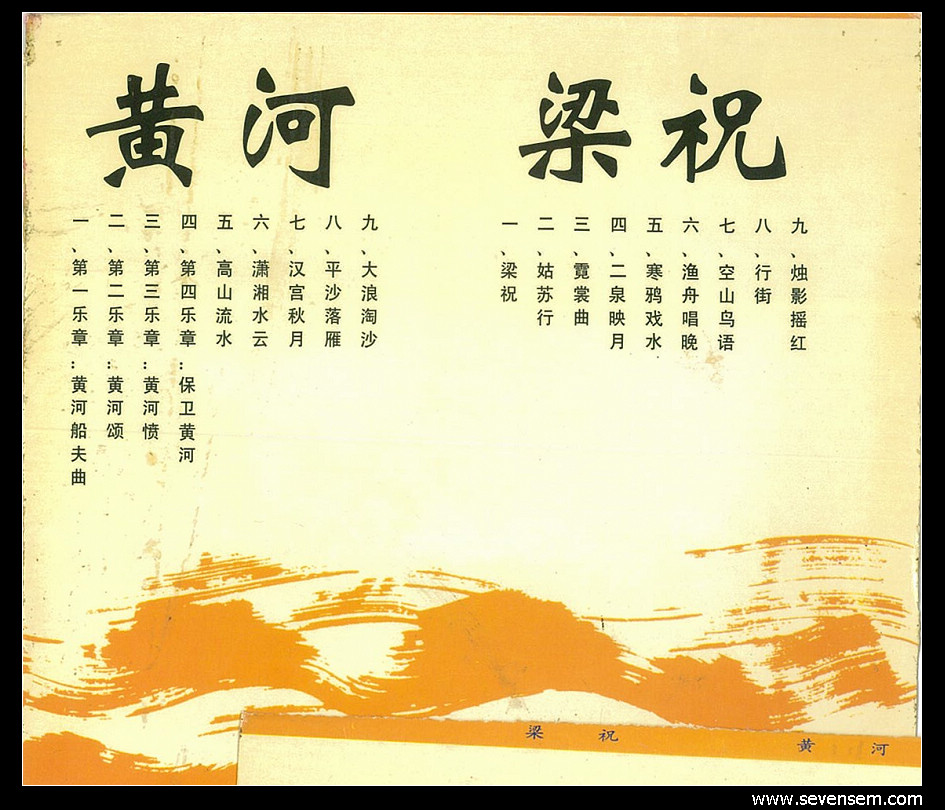 黄河
一、第一乐章：黄河船夫曲
二、第二乐章：黄河颂
三、第三乐章：黄河愤
四、第四乐章：保卫黄河
五、高山流水
六、潇湘水云
七、汉宫秋月
八、平沙落雁
九、大浪淘沙
梁祝
一、梁祝
二、姑苏行
三、霓裳曲
四、二泉映月
五、寒鸦戏水
六、渔舟唱晚
七、空山鸟语
八、行街
九、烛影摇红
梁祝 黄河
www.sevensem.com